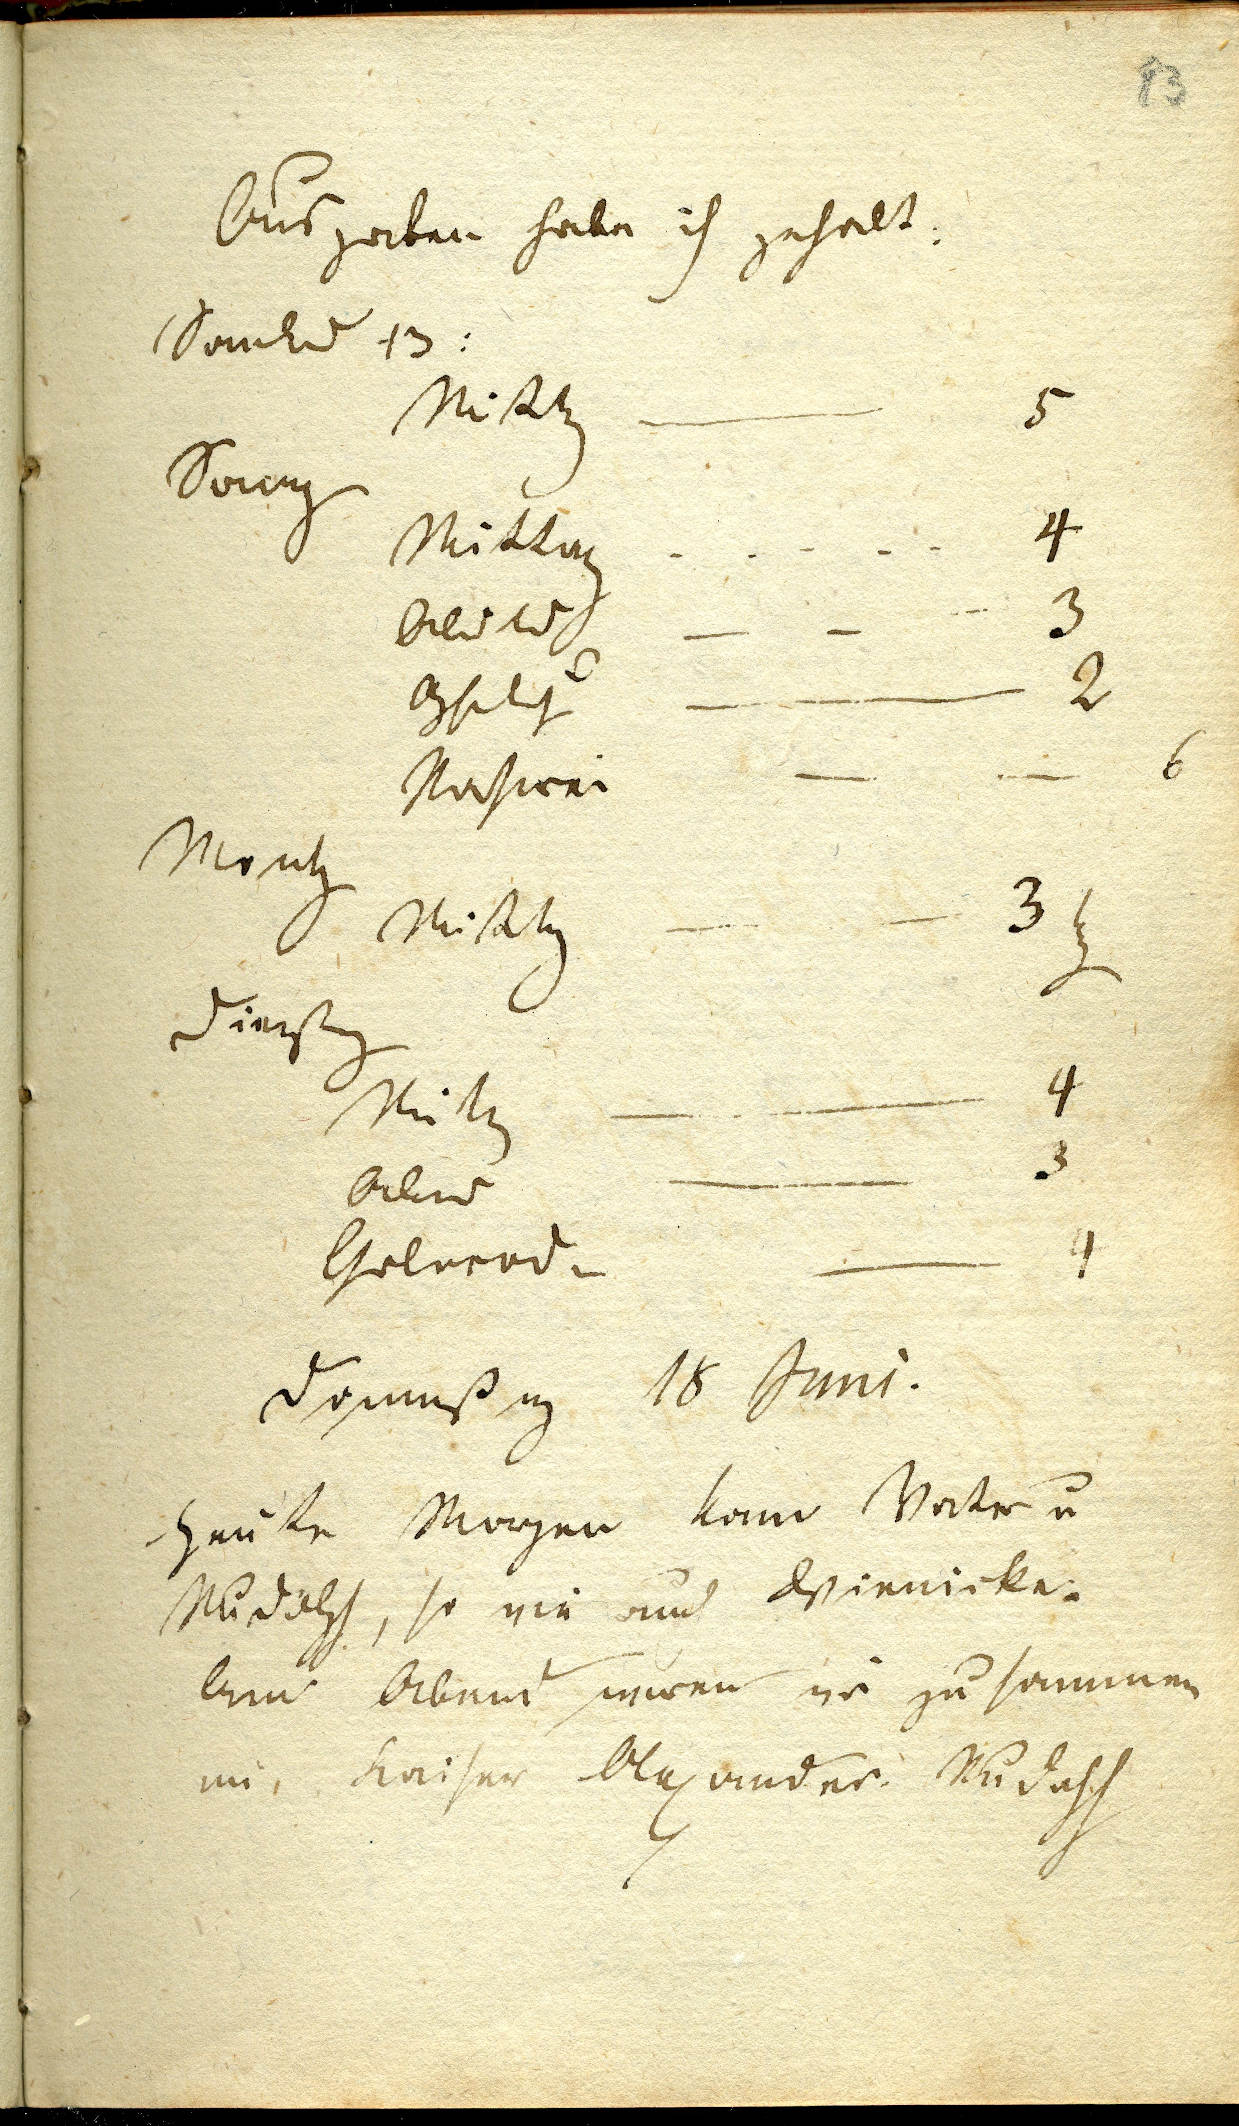 83
Ausgaben habe ich gehabt:
Sonabd 13:
Mittg 5
Sontg
Mittag 4
Abend 3
2
6
Montg
Mittg 3
Dienstg
Mittg 4
Abend 3
4
Donnerstg 18 Juni.
Heute Morgen kam Vater u
Rudolph, so wie auch Wienicke.
Am Abend waren wir zusammen
im Kaiser Alexander. Rudolph